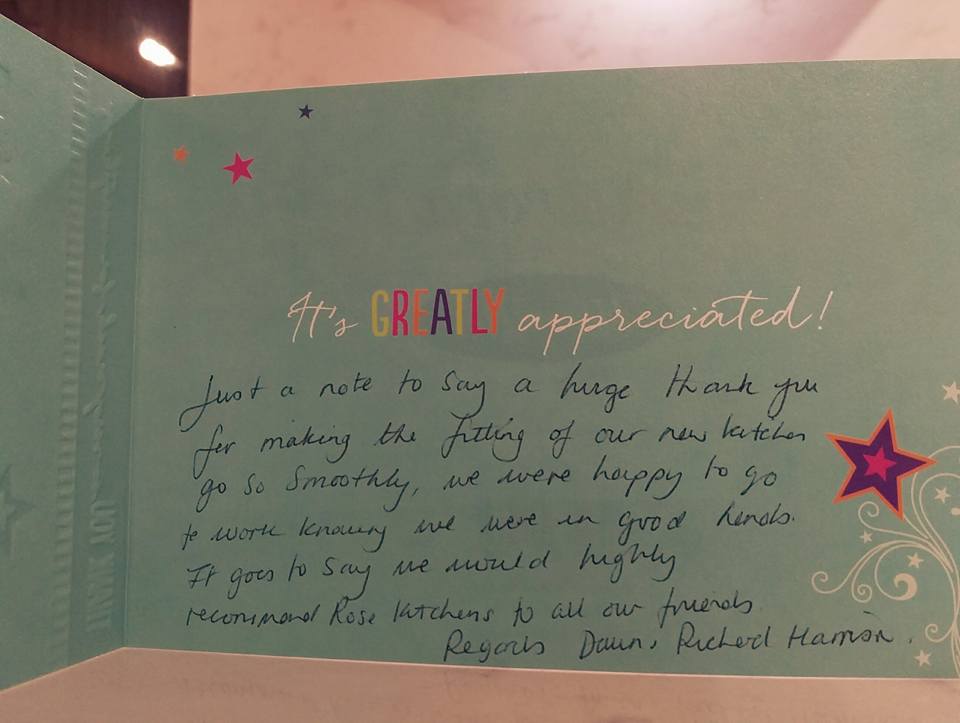 It's GREATLY appreciated!
Just a note to say a huge thank you
for making the fitting of our new kitchen
go so smoothly, we were happy to go
to work knowing we were in good hands.
It goes to say we would highly
recommend Rose Kitchens to all our friends
Regards Dawn, Richard Harrison.